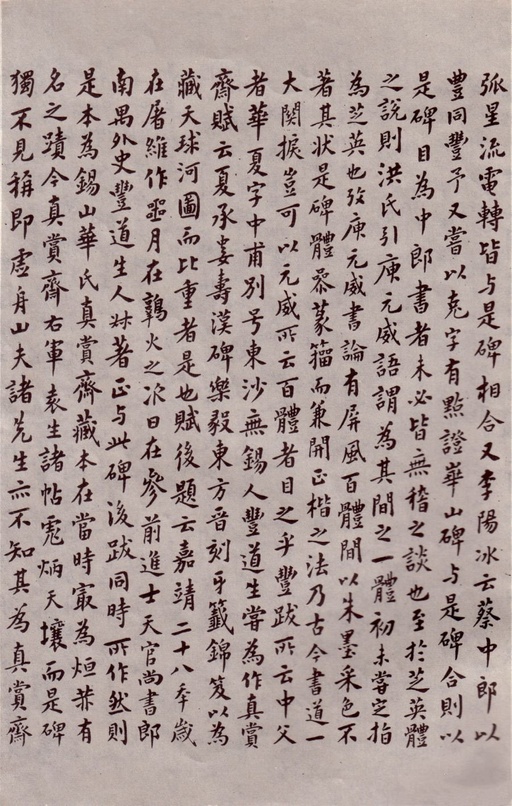 弧星流電轉皆与是碑相合又李陽冰云蔡中郎以
豐同豐予又嘗以嵬字有點證崋山碑与是碑合則以
是碑目為中郎書者未必皆無稽之談也至於芝英體
之說則洪氏引庾元威語謂為其間之一體初未嘗定指
為芝英也攷庾元威書論有屏風百體間以朱墨采色不
著其狀是碑體參篆籀而兼開正楷之法乃古今書道一
大関捩豈可以元威所云百體者目之乎豐跋所云中父
者華夏字中甫別号東沙無錫人豐道生嘗為作真賞
齋賦云夏承婁壽漢碑樂毅東方晉刻牙籤錦笈以為
藏天球河圖而比重者是也賦後題云嘉靖二十八年歲
在屠維作噩月在鶉火之次日在參前進士天官尚書郎
南禺外史豐道生人叔著正与此碑後跋同時所作然則
是本為錫山華氏真賞齋藏本在當時寂為烜赫有
名之蹟今真賞齋右軍袁生諸帖寬炳天壤而是碑
獨不見稱即虛舟山夫諸先生亦不知其為真賞齋